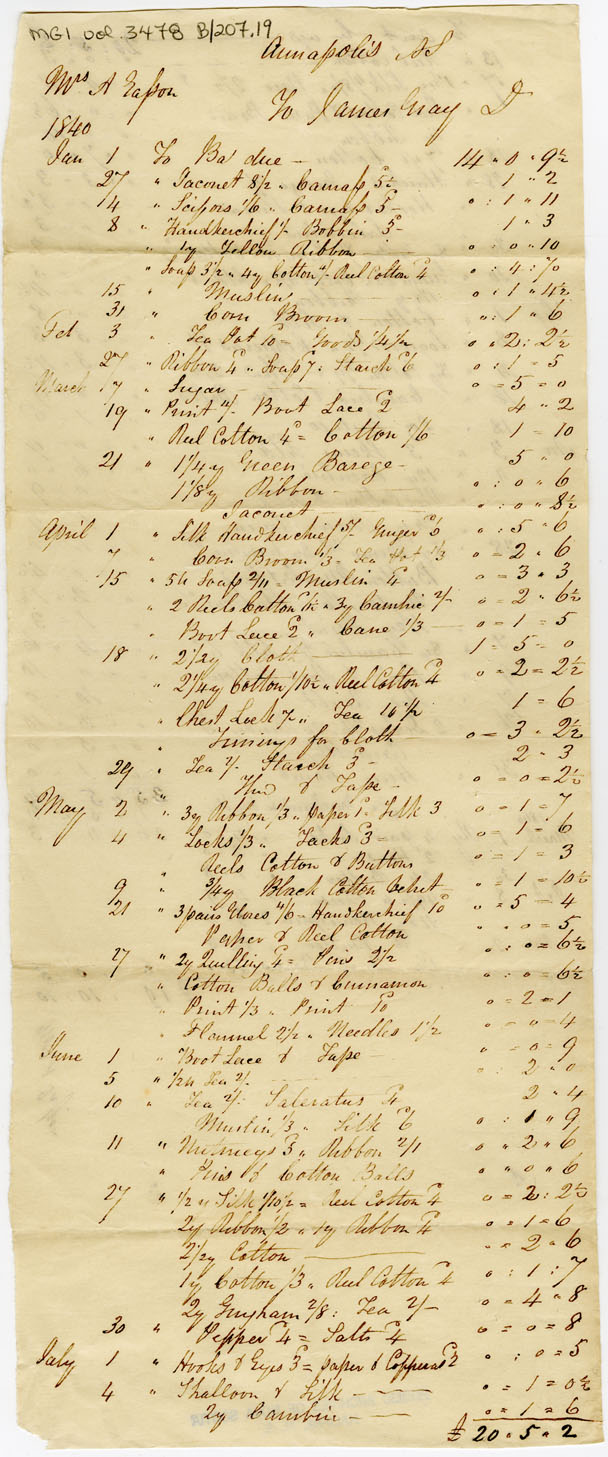 MG1 vol. 3478 B/207.19
Annapolis NS
Mrs A Easson
To James Gray D
1840
Jan 1 To Bal due — 14 " 0 " 9½
27 " Jaconet 8½ " Canvass 5½ - 1 " 2
4 " Scissors 1/6 " Canvass 5 - " : 1 " 11
8 " Handkerchief 1/- Bobbin 3 - 1 " 3
" 1y Yellow Ribbon " : 0 " 10
" Soap 3½ " 4y Cotton 4/- Reel Cotton 4 " : 4 : 7½
15 " Muslin " : 1 " 4½
31 " Corn Broom — " : 1 " 6
Feb 3 " Tea Pot 10 = Goods 1/4½ " 2 : 2½
27 " Ribbon 4 " Soap 7 : Starch 6 " : 1 = 5
March 17 " Sugar — " = 5 = 0
19 " Print 4/- Boot Lace 2 4 " 2
" Reel Cotton 4 = Cotton 1/6 1 = 10
21 " 1¼y Green Barege - 5 " 0
1⅛y Ribbon - " : 0 " 6
Jaconet - " : 0 " 8½
April 1 " Silk Handkerchief 5/- Ginger 6 " : 5 " 6
7 " Corn Broom 1/3 - Tea 1/3 " = 2 " 6
15 " Soap 2/11 = Muslin 4 " = 3 " 3
" 2 Reels Cotton " 3y Cambric 2/- " = 2 " 6½
" Boot Lace 2 " Cane 1/3 — " = 1 = 5
18 " 2½y Cloth — 1 = 5 = 0
" 2¼y Cotton 1/10½ " Reel Cotton 4 " = 2 = 2½
" Chest Lock 7½ " Tea 10½ 1 = 6
" Trimings for Cloth " = 3 " 2½
29 " Tea 2/- Starch 3 - 2 " 3
" & Tape - " = 0 = 2½
May 2 " 3y Ribbon 1/3 " Paper 1 = Silk 3 " = 1 = 7
4 " Locks 1/3 " Tacks 3 = " = 1 = 6
" Reels Cotton & Buttons " = 1 = 3
9 " ¾y Black Cotton Velvet " = 1 = 10½
21 " 3 pairs Gloves 4/6 - Handkerchief 10 " = 5 - 4
Paper & Reel Cotton " " 0 = 5
27 " 2y Quilling 4 = Pins 2½ " : 0 = 6½
" Cotton Balls & Cinnamon " : 0 = 6½
" Print 1/3 " Print 10 " = 2 = 1
" Flannel 2½ " Needles 1½ " = 0 = 4
June 1 " Boot Lace & Tape — " = 0 = 9
5 " ½ lb Tea 2/- — : 2 " 0
10 " Tea 2/- Saleratus 4 2 " 4
Muslin 1/3 " Silk 6 " : 1 " 9
11 " Nutmegs 5 " Ribbon 2/1 " " 2 " 6
" Pins & Cotton Balls " " 0 " 6
27 " ½y Silk 1/10½ = Reel Cotton 4 " = 2 : 2½
2y Ribbon 1/2 " 1y Ribbon 4 " = 1 = 6
2½y Cotton — " = 2 " 6
1y Cotton 1/3 " Reel Cotton 4 " : 1 : 7
2y Gingham 2/8 : Tea 2/- " = 4 " 8
30 " Pepper 4 = Salts 4 " = 0 = 8
July 1 " Hooks & Eyes 3 = Paper & Copperas 2 " : 0 = 5
4 " Shalloon & Silk — " = 1 = 0½
2y Cambric — " = 1 = 6
£ 20 " 5 " 2